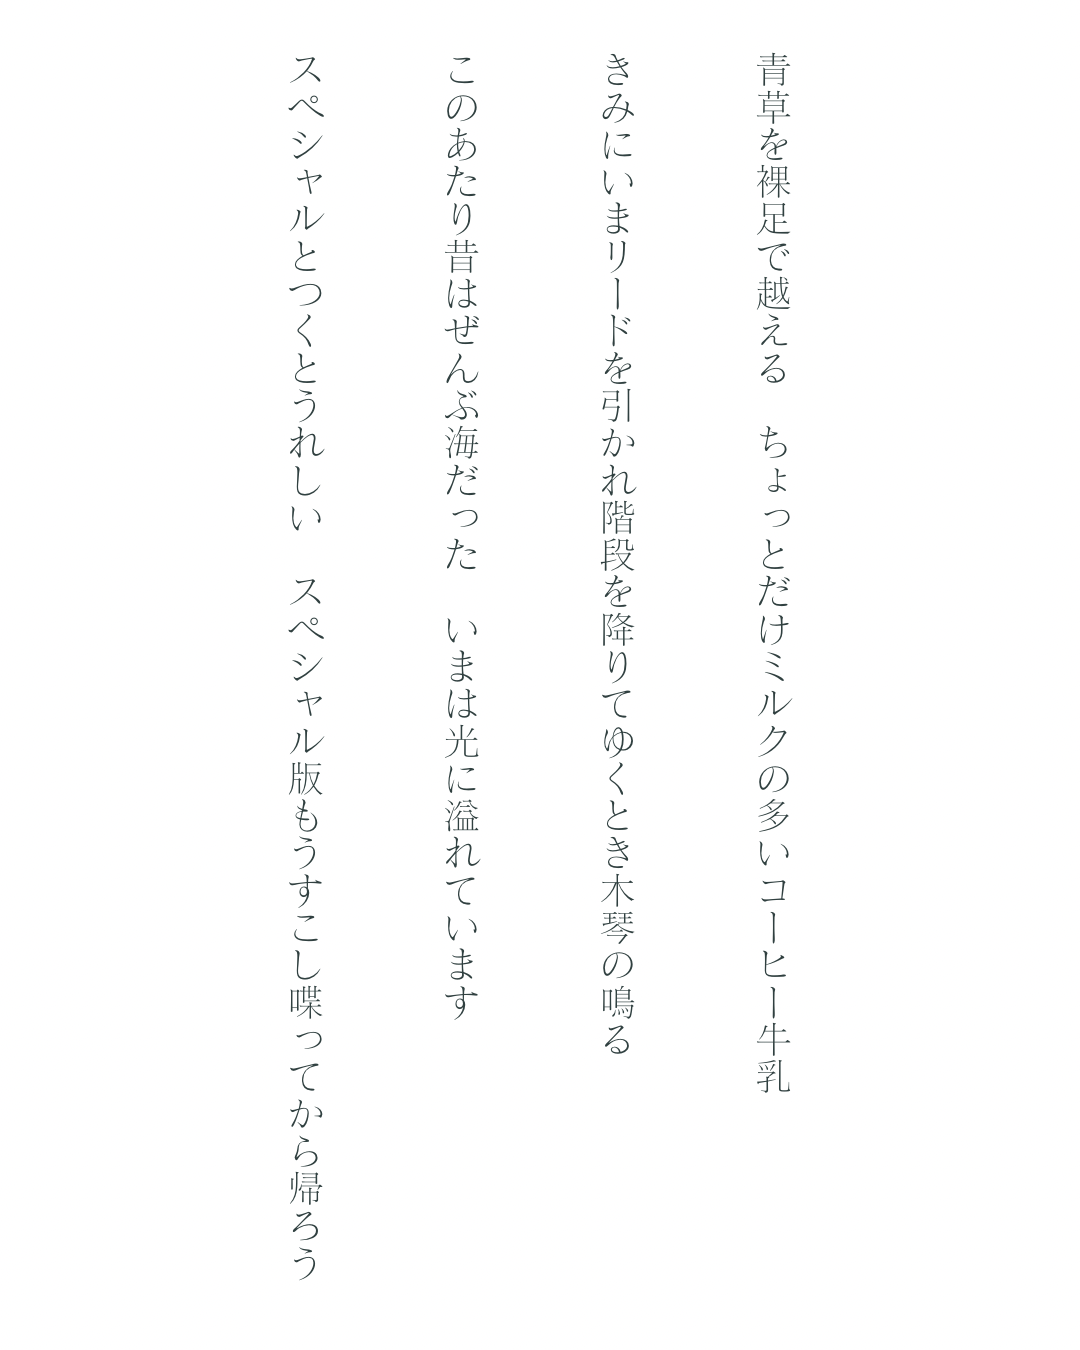 青草を裸足で越える　ちょっとだけミルクの多いコーヒー牛乳
きみにいまリードを引かれ階段を降りてゆくとき木琴の鳴る
このあたり昔はぜんぶ海だった　いまは光に溢れています
スペシャルとつくとうれしい　スペシャル版もうすこし喋ってから帰ろう